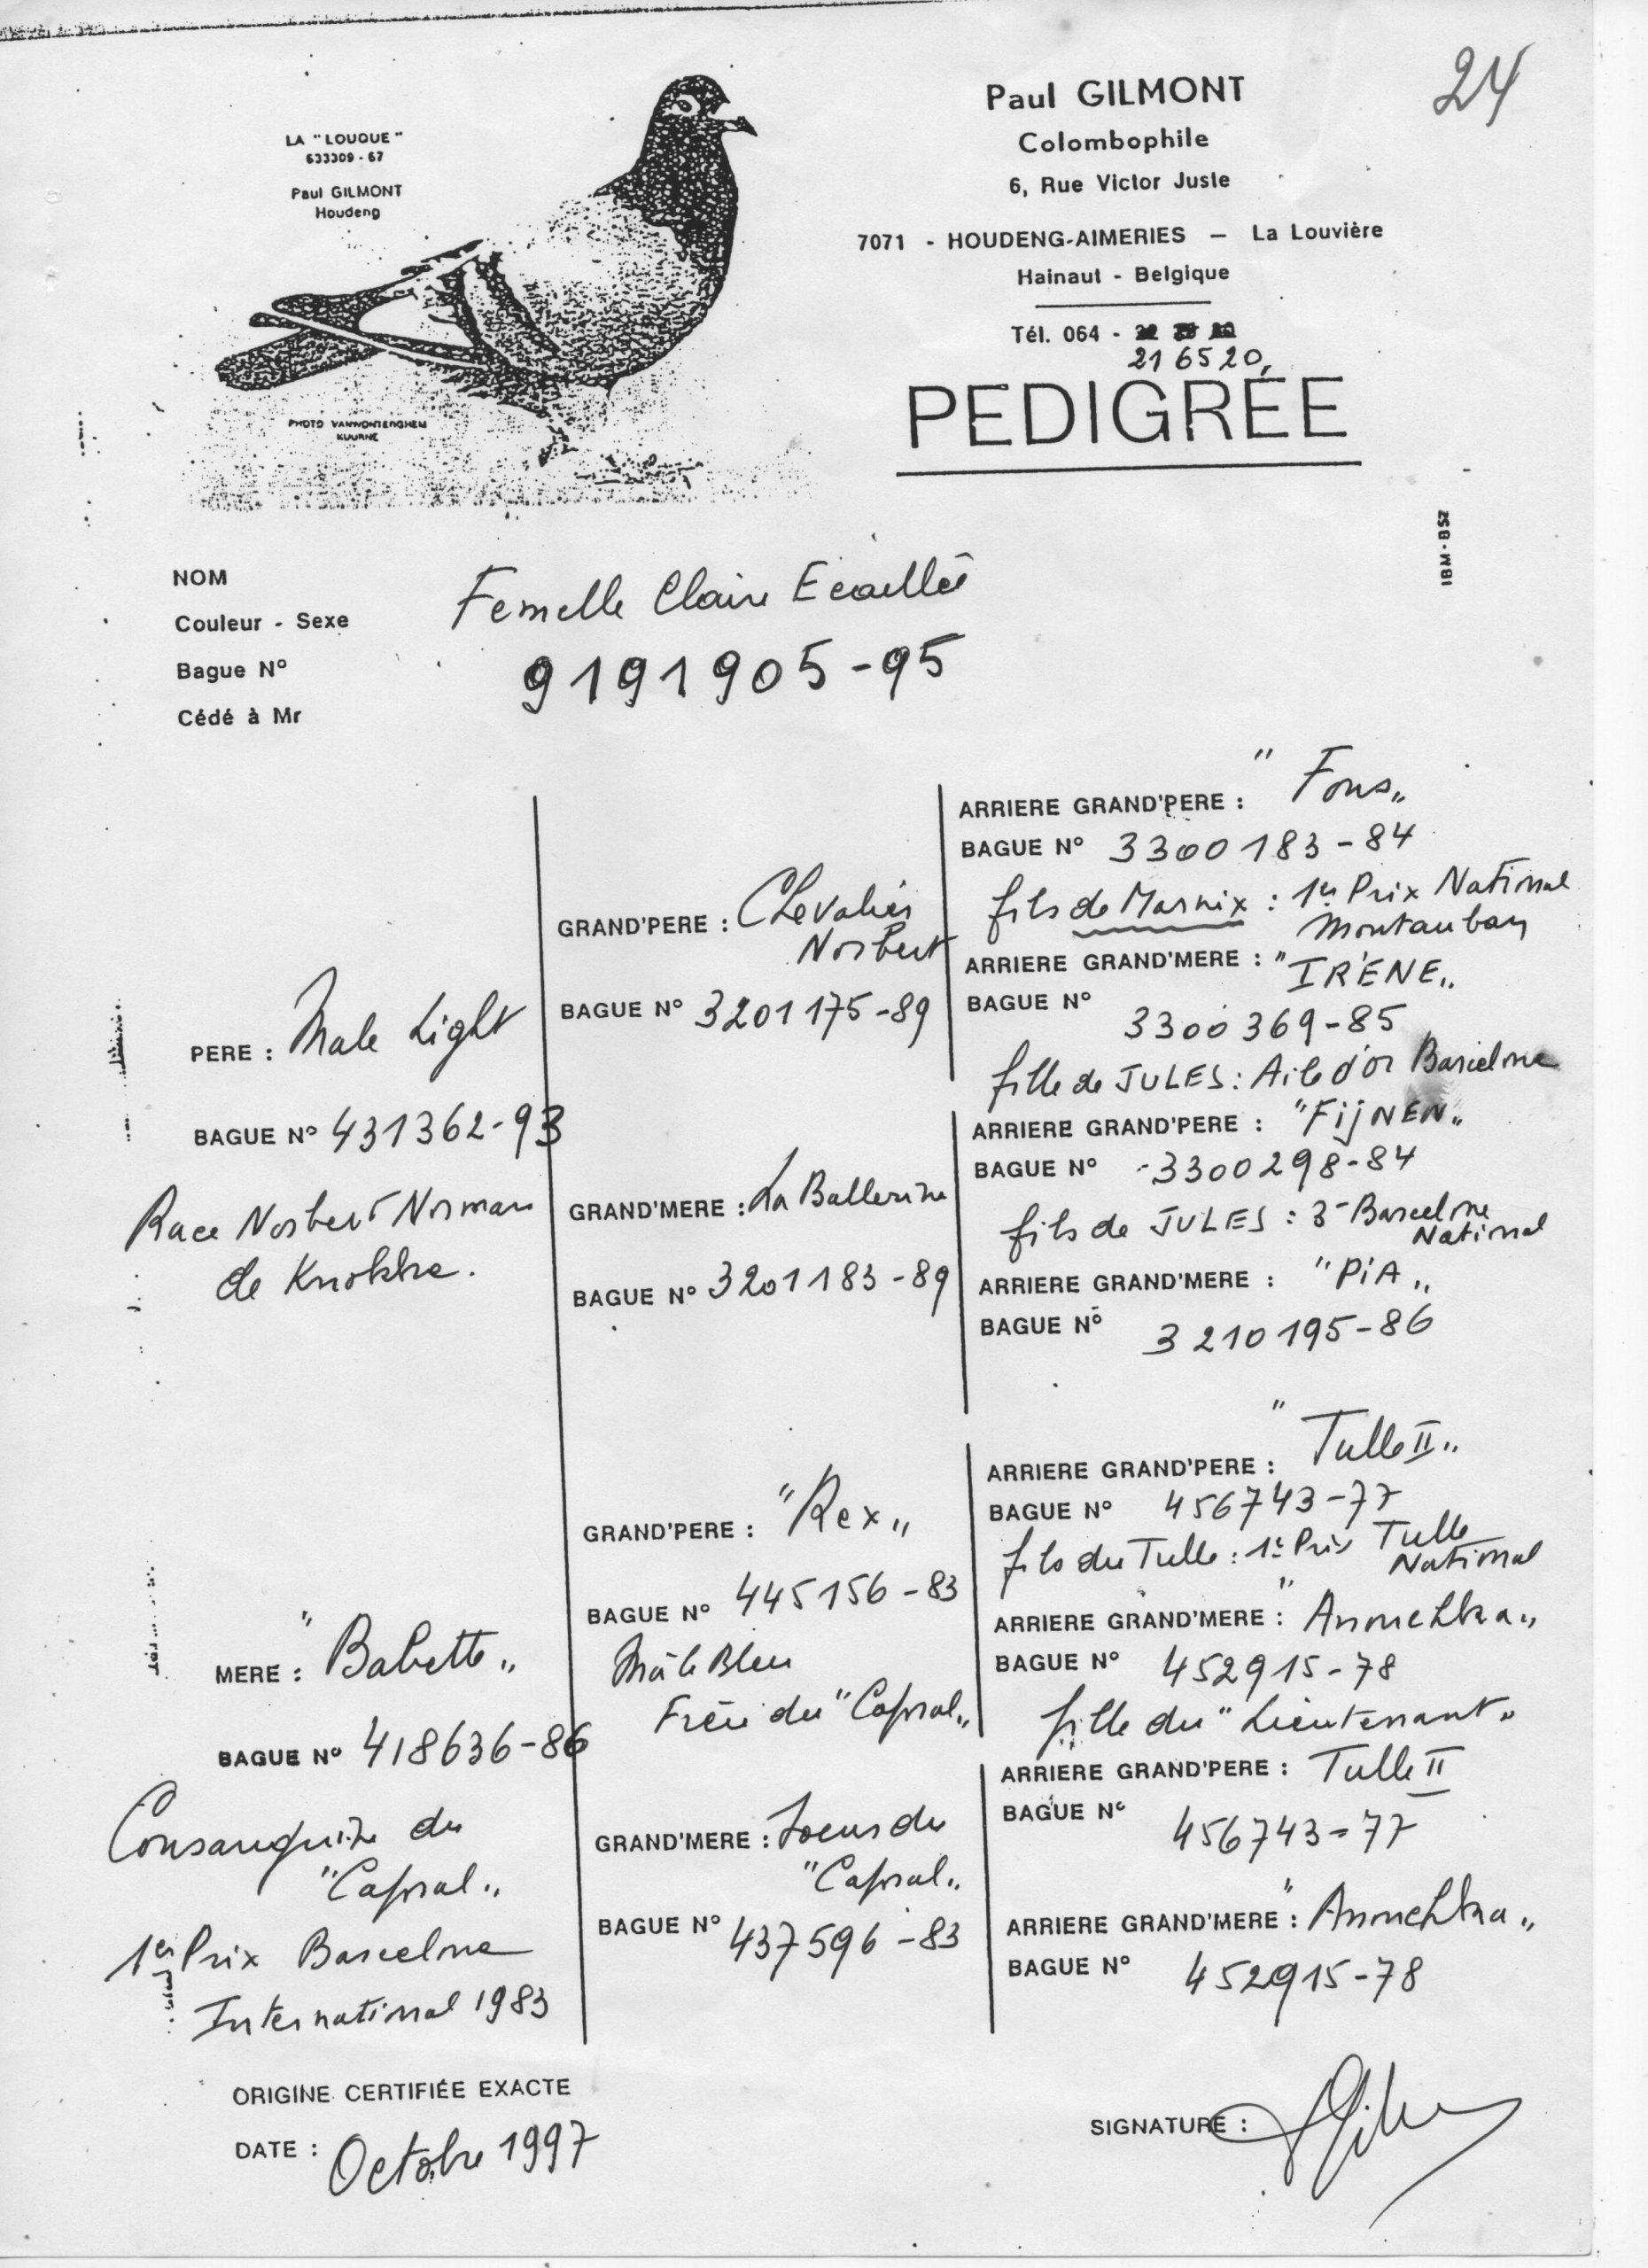 24
LA "LOUQUE"
633309 - 67
Paul GILMONT
Houdeng
PHOTO VANWONTERGHEM
KUURNE
Paul GILMONT
Colombophile
6, Rue Victor Juste
7071 - HOUDENG-AIMERIES — La Louvière
Hainaut - Belgique
Tél. 064 -
21 65 20,
PEDIGRÉE
IBM-BSZ
NOM
Couleur - Sexe
Femelle Claire Ecaillée
Bague N°
9191905-95
Cédé à Mr
PERE : Male Light
BAGUE N° 431362-93
Race Norbert Norman
de Knokke.
GRAND'PERE : Chevalier
Norbert
BAGUE N° 3201175-89
ARRIERE GRAND'PERE : "Fons"
BAGUE N° 3300183-84
fils de Marnix : 1er Prix National
Montauban
ARRIERE GRAND'MERE : "IRÈNE"
BAGUE N°
3300369-85
fille de JULES : Aile d'or Barcelone
GRAND'MERE : La Ballerine
BAGUE N° 3201183-89
ARRIERE GRAND'PERE : "FijNEN"
BAGUE N° 3300298-84
fils de JULES : 3e Barcelone
National
ARRIERE GRAND'MERE : "PiA"
BAGUE N°
3210195-86
MERE : "Babette"
BAGUE N° 418636-86
Consanguine du
"Caporal"
1er Prix Barcelone
International 1983
GRAND'PERE : "Rex"
BAGUE N° 445156-83
Mâle Bleu
Frère du "Caporal"
ARRIERE GRAND'PERE : "Tulle II"
BAGUE N° 456743-77
fils du Tulle : 1er Prix Tulle
National
ARRIERE GRAND'MERE : "Anouchka"
BAGUE N° 452915-78
fille du "Lieutenant"
GRAND'MERE : Soeur du
"Caporal"
BAGUE N° 437596-83
ARRIERE GRAND'PERE : Tulle II
BAGUE N°
456743-77
ARRIERE GRAND'MERE : "Anouchka"
BAGUE N° 452915-78
ORIGINE CERTIFIÉE EXACTE
DATE : Octobre 1997
SIGNATURE :